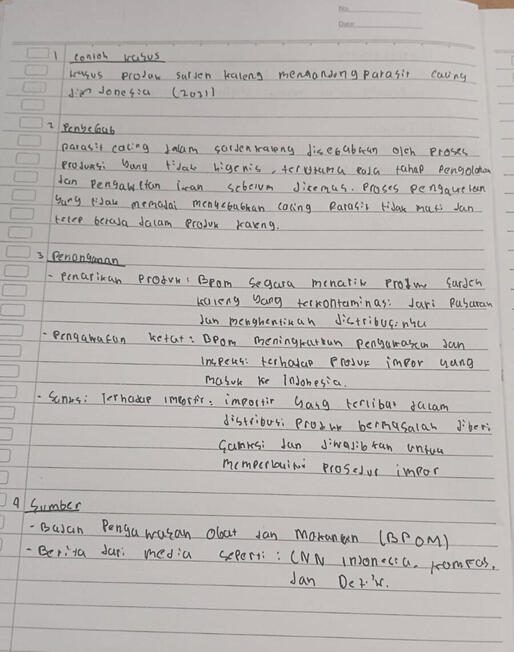 No.
Date
1 contoh kasus
kasus produk sarden kaleng mengandung parasit cacing
di Indonesia (2021)
2 Penyebab
parasit cacing dalam sarden kaleng disebabkan oleh proses
produksi yang tidak higenis, terutama pada tahap pengolahan
dan pengawetan ikan sebelum dikemas. Proses pengawetan
yang tidak memadai menyebabkan cacing parasit tidak mati dan
tetap berada dalam produk kaleng.
3 Penanganan
- penarikan produk : Bpom segara menarik produk sarden
kaleng yang terkontaminasi dari pasaran
dan menghentikan distribusinya
- pengawasan ketat : Bpom meningkatkan pengawasan dan
inspeksi terhadap produk impor yang
masuk ke Indonesia.
- Sanksi Terhadap importir : importir yang terlibat dalam
distribusi produk bermasalah diberi
sanksi dan diwajibkan untuk
memperbaiki prosedur impor
4 Sumber
- Badan Pengawasan Obat dan Makanan (BPOM)
- Berita dari media seperti : CNN Indonesia, kompas,
dan Detik.